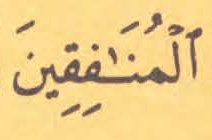 ٱلْمُنَٰفِقِينَ